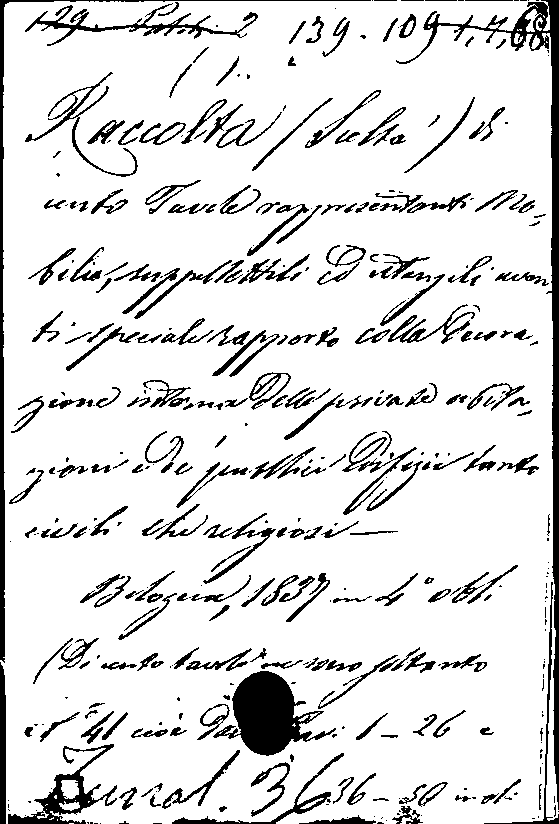 129. 2 139. 109
Raccolta (Scelta) di
cento Tavole rappresentanti Mo-
bilie, suppellettili ed utensili aven-
ti speciale rapporto colla Decora-
zione interna delle private abita-
zioni e de' pubblici Edifizii tanto
civili che religiosi —
Bologna, 1837 in 4° obl:
(Di cento tavole ne sono soltanto
n° 41 cioè 1 – 26 e
36 36 – 50